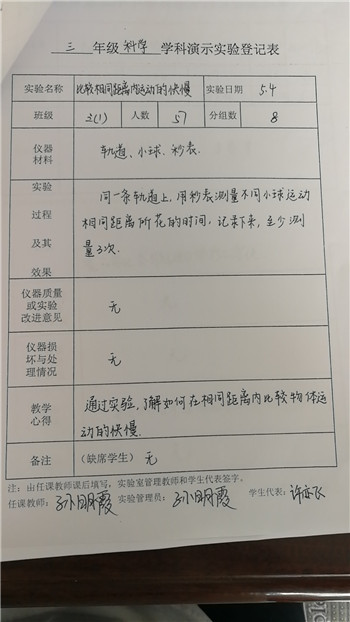 三 年级 科学 学科演示实验登记表
实验名称 比较相同距离内运动的快慢 实验日期 5.4
班级 3(1) 人数 57 分组数 8
仪器材料 轨道、小球、秒表.
实验过程及其效果
同一条轨道上，用秒表测量不同小球运动
相同距离所花的时间，记录下来，至少测
量3次.
仪器质量或实验改进意见 无
仪器损坏与处理情况 无
教学心得
通过实验，了解如何在相同距离内比较物体运
动的快慢.
备注 （缺席学生） 无
注：由任课教师课后填写，实验室管理教师和学生代表签字。
任课教师：孙明霞 实验管理员：孙明霞 学生代表：许亦飞